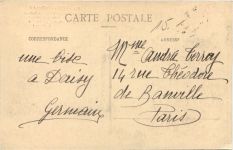 CARTE POSTALE
CORRESPONDANCE
une bise
à Daisy
Germain
ADRESSE
Mme André Terroy
14 rue Théodore
de Banville
Paris